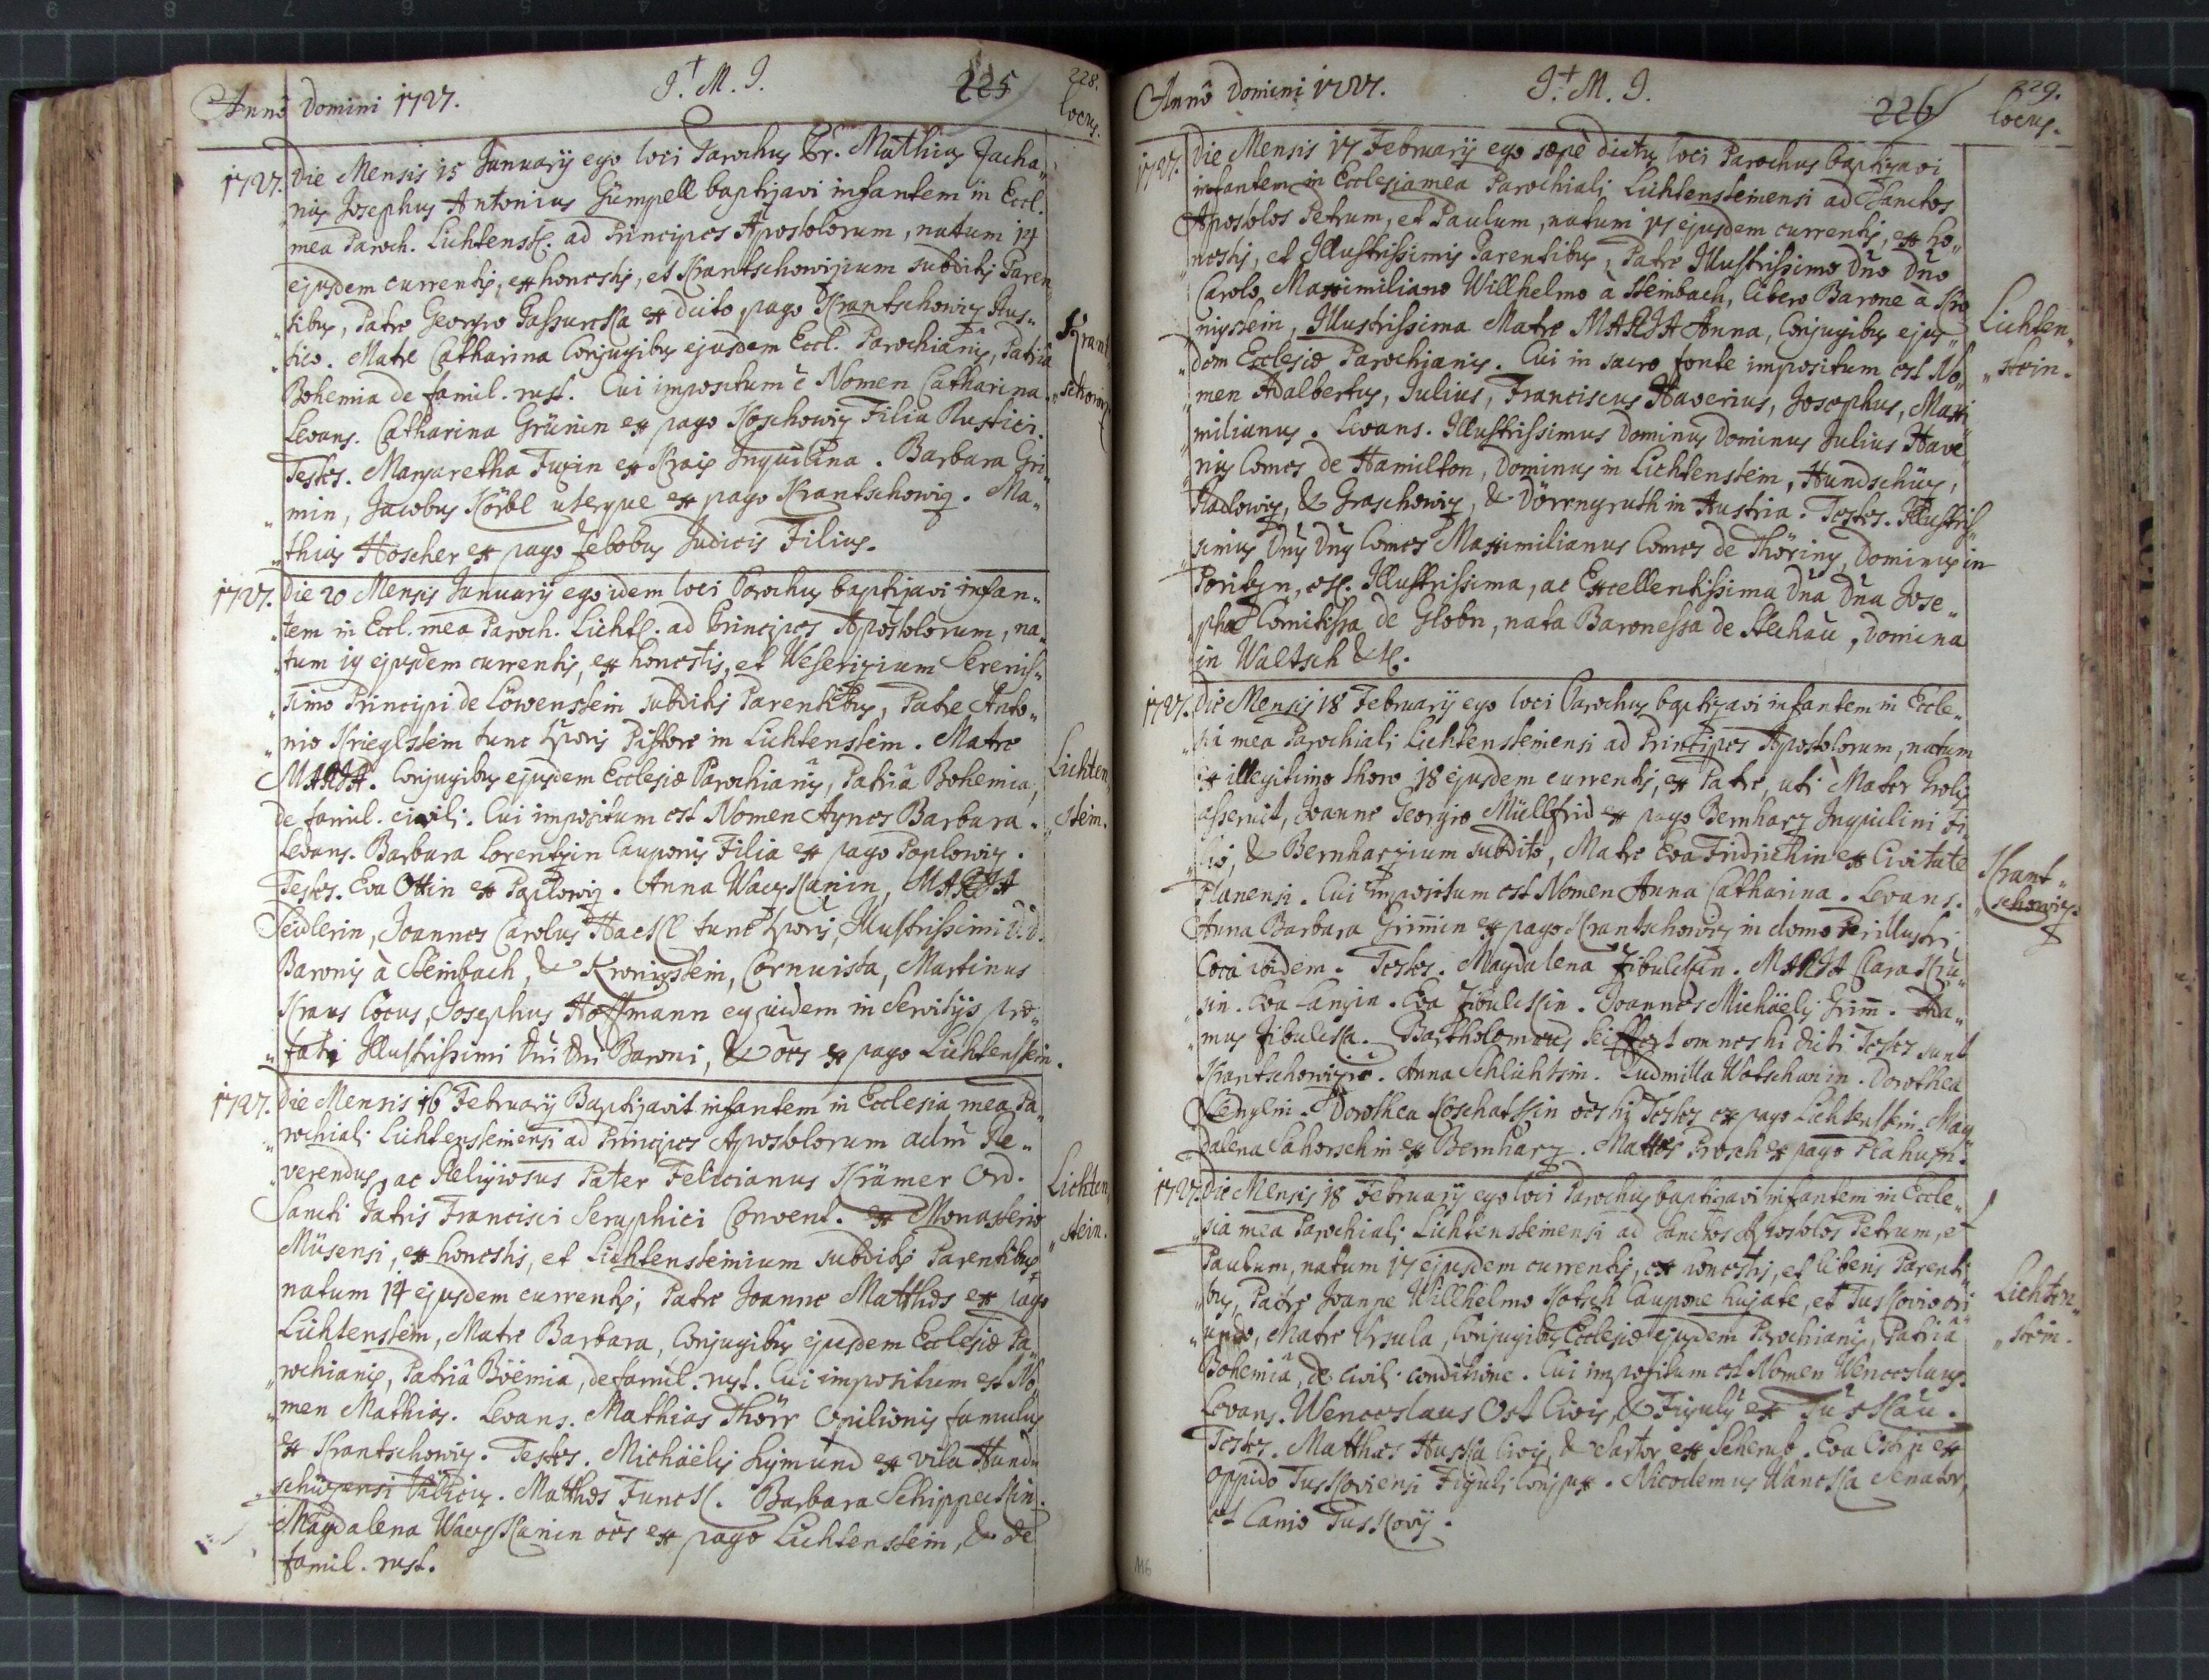 Anno Domini 1727. J. M. J. 225 228.
locus.
1727. Die Mensis 15 January ego loci Parochus Fr. Mathias Zacha„
nias Josephus Antonius Gümpell baptizavi infantem in Eccl.
mea Paroch. Lichtenst. ad Principes Apostolorum, natum 14
ejusdem currentis, ex honestis, et Krantschowizium subditis Paren„
„tibus, Patre Georgio Passurcka ex dicto pago Krantschowiz Rus„
„tico. Matre Catharina Conjugibus ejusdem Eccl. Parochianis, Patriâ
Bohemia de famil. rust. Cui impositum ē Nomen Catharina.
Krant„
„schowiz
Levans. Catharina Grünin ex pago Koschowiz Filia Rustici.
Testes. Margaretha Fuxin ex Krips Inquilina. Barbara Gri„
„min, Jacobus Körbl uterque ex pago Krantschowiz. Ma„
„thias Hoscher ex pago Zebobus Judicis Filius.
1727. Die 20 Mensis January ego idem loci Parochus baptizavi infan„
„tem in Eccl. mea Paroch. Lichtst. ad Principes Apostolorum, na„
„tum 19 ejusdem currentis, ex honestis, et Weserizium Serenis„
„simo Principi de Löwenstein subditis Parentibus, Patre Anto„
„nio Krieglstein tunc tporis Pistore in Lichtenstein. Matre
MARIA. Conjugibus ejusdem Ecclesiæ Parochianis, Patriâ Bohemia,
de famil. civili. Cui impositum est Nomen Agnes Barbara.
Lichten„
„stein.
Levans. Barbara Lorentzin Cauponis Filia ex pago Poplowiz.
Testes. Eva Ottin ex Poplowiz. Anna Wacyskanin, MARIA
Seidlerin, Joannes Carolus Hackl tunc tporis, Illustrissimi D. D.
Baronis à Steinbach, & Kronigstein, Cornuista, Martinus
Kraus Cocus, Josephus Hoffmann equidem in Servitijs præ„
„fati Illustrissimi Dni Dni Baroni, & oēs ex pago Lichtenstein.
1727. Die Mensis 16 February Baptizavit infantem in Ecclesia mea Pa„
„rochiali Lichtensteinensi ad Principes Apostolorum adm̄ Re„
„verendus, ac Religiosus Pater Felicianus Krämer Ord.
Sancti Patris Francisci Seraphici Convent. ex Monasterio
Misensi, ex honestis, et Lichtensteinium subditis Parentibus
natum 14 ejusdem currentis; Patre Joanne Matthæs ex pago
Lichtenstein, Matre Barbara, Conjugibus ejusdem Ecclesiæ Pa„
„rochianis, Patriâ Boëmia, de famil. rust. Cui impositum est No„
„men Mathias. Levans. Mathias Thörr Opilionis famulus
Lichten„
„stein.
ex Krantschowiz. Testes. Michaëlis Sigmund ex vila Hund„
„schüzensi Villicus. Matthæs Funck. Barbara Schippeckin.
Magdalena Wacyskanin oēs ex pago Lichtenstein, & de
famil. rust.
Anno Domini 1727. J. M. J. 226 229.
locus.
1727. Die Mensis 17 February ego sæpè dictus loci Parochus baptizavi
infantem in Ecclesia mea Parochiali Lichtensteinensi ad Sanctos
Apostolos Petrum, et Paulum, natum 17 ejusdem currentis, ex ho„
„nestis, et Illustrissimis Parentibus, Patre Illustrissimo Dno Dno
Carolo, Maximiliano Willhelmo à Steinbach, libero Barone à Kro„
„nigstein, Illustrissima Matre MARIA Anna, Conjugibus ejus„
„dem Ecclesiæ Parochianis. Cui in sacro fonte impositum est No„
„men Adalbertus, Julius, Franciscus Xaverius, Josephus, Maxi„
Lichten„
„stein.
„milianus. Levans. Illustrissimus Dominus Dominus Julius Xave„
„rius Comes de Hamilton, Dominus in Lichtenstein, Hundschüz,
Radlowiz, & Graschowiz, & Dörrengruth in Austria. Testes. Illustris„
„simus Dnus Dnus Comes Maximilianus Comes de Thöring, Dominus in
Poritzn, etc. Illustrissima, ac Excellentissima Dna Dna Jose„
„pha Comitissa de Globn, nata Baronessa de Stechau, Domina
in Waltsch etc.
1727. Die Mensis 18 February ego loci Parochus baptizavi infantem in Eccle„
„sia mea Parochiali Lichtensteinensi ad Principes Apostolorum, natum
ex illegitimo thoro 18 ejusdem currentis, ex Patre, uti Mater Prolis
asseruit, Joanne Georgio Müllfrid ex pago Bernharz Inquilini Fi„
„lio, & Bernharzium subdito, Matre Eva Fridrichin ex Civitate
Planensi. Cui impositum est Nomen Anna Catharina. Levans.
Krant„
„schowiz.
Anna Barbara Grimin ex pago Krantschowiz in domo Perillustri
Coca ibidem. Testes. Magdalena Zibulckin. MARIA Clara Kru„
„sin. Eva Langin. Eva Zibulckin. Joannes Michaëlis Grim̄. Tho„
„mas Zibulcka. Bartholomæus Seiffert omnes hi dicti Testes sunt
Krantschowizio. Anna Schlichtsin. Ludmilla Watschanin. Dorothea
Slenglin. Dorothea Koschatkin oēs hi Testes ex pago Lichtenstein. Mag„
„dalena Sahorschin ex Bernharz. Matthes Prosch ex pago Plahusn.
1727. Die Mensis 18 February ego loci Parochus baptizavi infantem in Eccle„
„sia mea Parochiali Lichtensteinensi ad Sanctos Apostolos Petrum, et
Paulum, natum 17 ejusdem currentis, ex honestis, et liberis Parenti„
„bus, Patre Joanne Willhelmo Kotsch Caupone hujate, et Tuskovio ori„
„undo, Matre Ursula, Conjugibus Ecclesiæ ejusdem Parochianis, Patriâ
Bohemiâ, de civili conditione. Cui impositum est Nomen Wenceslaus.
Lichten„
„stein.
Levans. Wenceslaus Ost Civis, & Figulus ex Tuskau.
Testes. Matthæs Hussa Civis, & Sartor ex Scherub. Eva Ostin ex
oppido Tuskoviensi Figuli Conjux. Nicodemus Wancka Senator,
et Lanio Tuskovij.
116